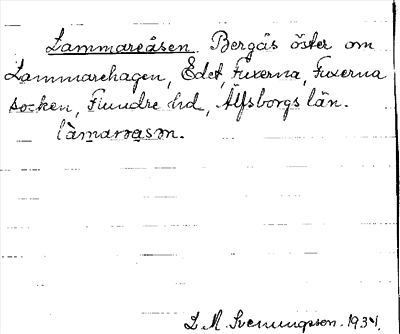 Lammareåsen. Bergås öster om
Lammarehagen, Edet, Fuxerna, Fuxerna
socken, Flundre hd, Älfsborgs län.
D. M. Svenungsson. 1934.